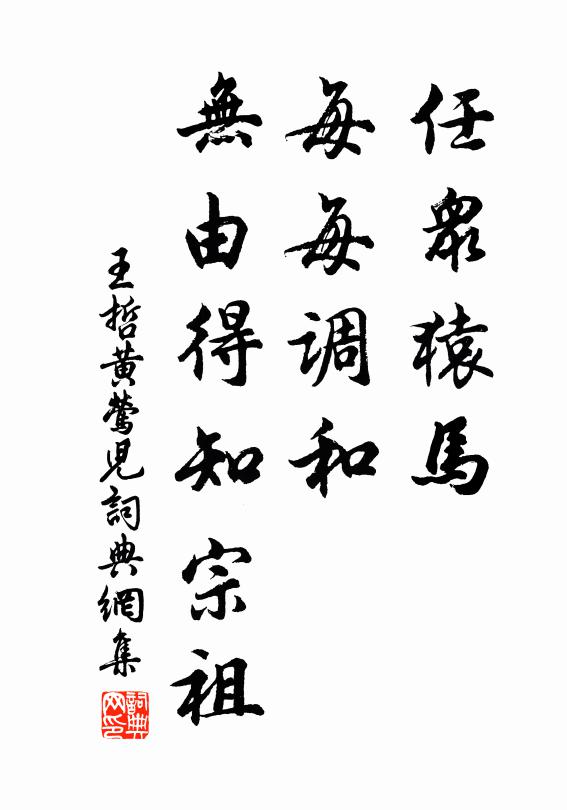 任眾猿馬
每每調和
無由得知宗祖
王哲黃鶯兒詞典網集
詞典網印